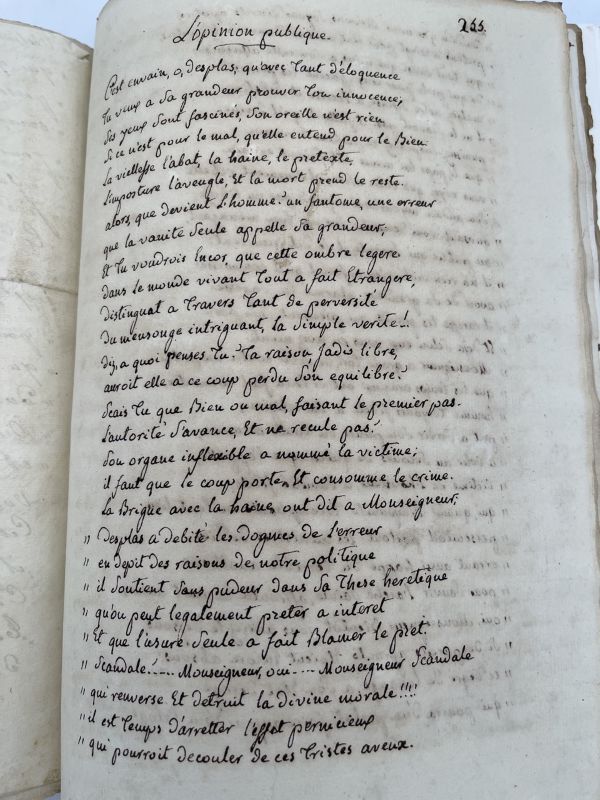 L'opinion publique.
255.
C'est envain, o, desplas, qu'avec tant d'éloquence
tu veux a sa grandeur prouver ton innocence,
ses yeux sont fascinés, son oreille n'est rien
si ce n'est pour le mal, qu'elle entend pour le Bien.
la viellesse l'abat, la haine, le pretexte,
l'imposture l'aveugle, Et la mort prend le reste.
alors, que devient l'homme? un fantome, une erreur
que la vanité seule appelle sa grandeur;
Et tu voudrois Encor, que cette ombre legere
dans le monde vivant tout a fait Etrangere,
distinguat a travers tant de perversité
du mensonge intriguant, la simple verité!.
dis, a quoi penses tu? ta raison jadis libre,
auroit elle a ce coup perdu son equilibre?
scais tu que Bien ou mal, faisant le premier pas.
l'autorité s'avance, Et ne recule pas?
son organe inflexible a nommé la victime;
il faut que le coup porte, Et consomme le crime.
la Brigue avec la haine, ont dit a Monseigneur;
" desplas a debité les dogmes de l'erreur
" en depit des raisons de notre politique
" il soutient sans pudeur dans sa these heretique
" qu'on peut legalement preter a interet
" Et que l'usure seule a fait Blamer le pret.
" Scandale!..... Monseigneur, oui .... Monseigneur Scandale
" qui renverse Et detruit la divine morale!!!!
" il est temps d'arretter l'effet pernicieux
" qui pourroit decouler de ces tristes aveux.